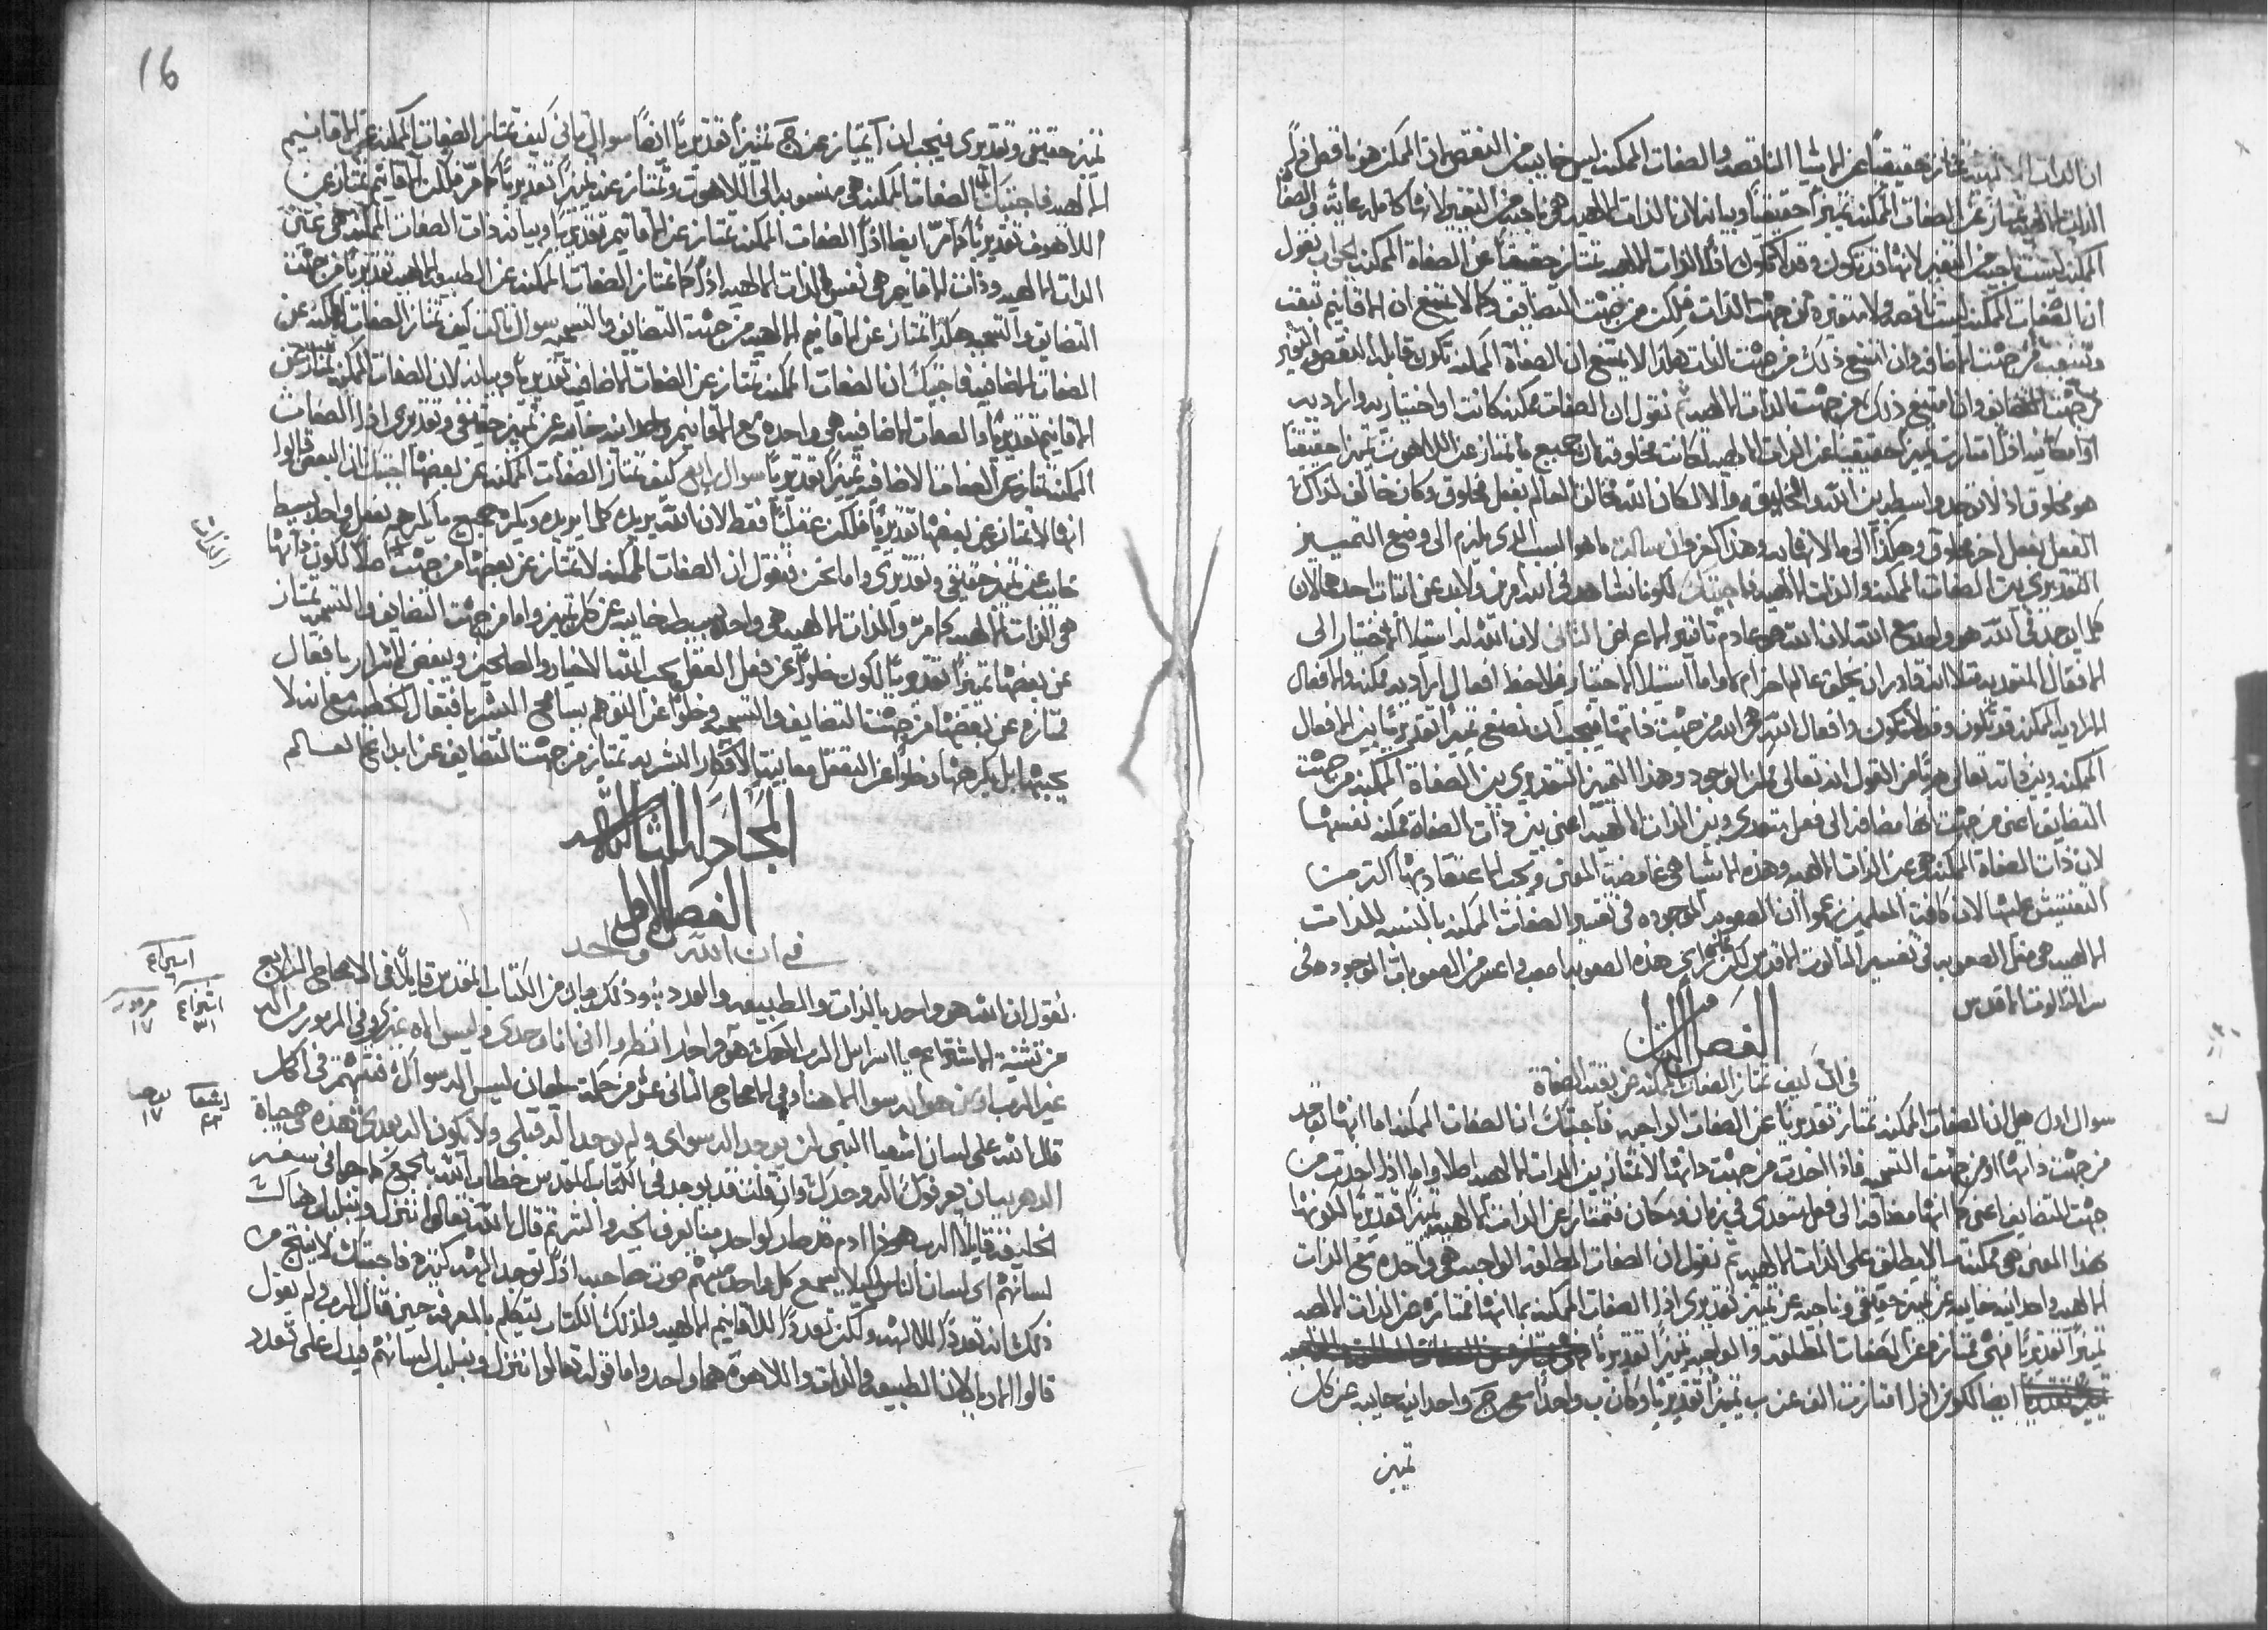 ان الذات الالهية تمتاز حقيقيًا عن الاشيا الناقصه والصفات الممكنه ليس خاليه من النقص لان الممكن هو ناقص اذًا
الذات الالهيه تمتاز عن الصفات الممكنه تميزًا حقيقيًا وبيانه لان الذات الالهيه هي ناجيه من التغير لانها كامله
الممكنه ليست ناجيه من التغير لانها قد تكون وقد لا تكون فاذًا الذات الالهيه تمتاز حقيقيًا عن الصفاة الممكنه الجواب نقول
ان الصفات الممكنه ليست ناقصه ولا متغيره من جهت الذات فلكن من جهت التضايف وكما لا يمتنع ان الاقانيم تبقت
من جهت الاضافه وان امتنع ذلك من جهت الذات هكذا لا يمتنع ان الصفاة الممكنه تكون قابله النقص والتغير
من جهت التضايف وان امتنع ذلك من جهت الذات الالهيه ثم نقول ان الصفات ممكنه كانت او اختياريه واراديه
او امكانيه اذا امتازت تميزًا حقيقيًا عن الذات الالهيه لكانت مخلوقه لان جميع ما تمتاز عن اللاهوت تميزًا حقيقيًا
هو مخلوق اذ لا توجد واسطه بين الله والخليقه والا لكان الله خالق العالم بفعل مخلوق وكان خالق لذاك
الفعل بفعل اخر مخلوق وهكذا الى ما لا نهايه وهذا كفر وان سالت ما هو السبب الذي يلزم الى وضع التمييز
التقديري بين الصفات الممكنه والذات الالهيه فاجبتك لكوننا نشاهد في الله امرين ولا بد عن اثبات احدهما لان
كلما يوجد في الله هو واحد مع الله لان الله هو عادم تاثير الاعراض الثاني لان الله له استيلا الاختيار الى
الافعال المتعديه مثلا انه قادر ان يخلق عالم اخر ام لا واما استيلا الاختيار فيلاحظ افعال اراديه ممكنه والافعال
الاراديه الممكنه قد تكون وقد لا تكون وافعال الله هي الله من حيث ذاتها فيجب ان نضع تميزًا تقديريًا بين الافعال
الممكنه وبين ذاته تعالى هربًا من القول انه تعالى ممكن الوجود وهذا التميز التقديري بين الصفاة الممكنه من جهت
التضايف اعني من جهت انها مضافه الى فعل متعدي وبين الذات الالهيه اعني بين ذات الصفاة ممكنه نفسها
لان ذات الصفاة الممكنه هي عين الذات الالهيه وهذه الاشيا هي غامضت المعنى ويجب الاعتقاد بها اكثر من
التفتيش عليها لان كافة المعلمين زعموا ان الصعوبه الموجوده في تفسير الصفات الممكنه بالنسبه للذات
الالهيه هي مثل الصعوبه في تفسير الثالوث الاقدس لكن هذه الصعوبه اصعب واعسر من الصعوبات الموجوده في
سر الثالوث الاقدس
الفصل الثالث
في انك كيف تمتاز الصفات الممكنه عن بقية الصفاة
سوال اول هل ان الصفات الممكنه تمتاز تقديريًا عن الصفات الواجبه فاجبتك ان الصفات الممكنه اما انها توخد
من جهت ذاتها او من جهت التسميه فاذا اخذت من جهت ذاتها لا تمتاز بين الذات الالهيه اصلا واما اذا اخذت من
جهت التضايف اعني كما انها مضافه الى فعل متعدي في زمان ومكان فتمتاز عن الذات الالهيه تميزًا تقديريًا لكونها
بهذا المعنى هي ممكنه ما لا يطلق على الذات الالهيه ثم نقول ان الصفات المطلقه الواجبه هي واحده مع الذات
الالهيه واحدانيه خاليه عن تميز حقيقي وناجيه عن تميز تقديري اذا الصفات الممكنه بما انها ممتازه عن الذات الالهيه
تميزًا تقديريًا فهي ممتازه عن الصفات المطلقه والواجبه تميزًا تقديريًا
ايضا لكون اذا امتازت الف عن ب تميزًا تقديريًا وكان ب واحدًا مع ج واحدانيه خاليه عن كل
تميز
16
تميز حقيقي وتقديري فيجب ان آ يمتاز عن ج تميزًا تقديريًا ايضًا سوال ثاني كيف تمتاز الصفات الممكنه عن الاقانيم
الالهيه فاجبتك ان الصفات الممكنه هي منسوبه الى اللاهوت وتمتاز عنه تميزًا تقديريًا كما مرّ فلكن الاقانيم تمتاز عن
اللاهوت تقديريًا كما مرّ ايضا اذًا الصفات الممكنه تمتاز عن الاقانيم تقديريًا وبيانه ذات الصفات الممكنه هي عين
الذات الالهيه وذات الاقانيم هي نفس الذات الالهيه اذًا كما تمتاز الصفات الممكنه عن الطبيعه الالهيه تقديريًا من جهت
التضايف والتسميه هكذا تمتاز عن الاقانيم الالهيه من جهت التضايف والتسميه سوال ثالث كيف تمتاز الصفات الممكنه عن
الصفات الاضافيه فاجبتك ان الصفات الممكنه تمتاز عن الصفات الاضافيه تقديريًا وبيانه لان الصفات الممكنه تمتاز عن
الاقانيم تقديريًا والصفات الاضافيه هي واحده مع الاقانيم واحدانيه خاليه عن تميز حقيقي وتقديري اذا الصفات
الممكنه تمتاز عن الصفات الاضافيه تميزًا تقديريًا سوال رابع كيف تمتاز الصفات الممكنه عن بعضها اجبتك ان البعض قالوا
انها لا تمتاز عن بعضها تقديريًا فلكن عقليًا فقط لان الله يريد كلما يريده ويكره جميع ما يكرهه بفعل واحد بسيط
خالي عن تميز حقيقي وتقديري واما نحن فنقول ان الصفات الممكنه لا تمتاز عن بعضها من جهت ذاتها اصلًا لكون ذاتها
هي الذات الالهيه كما مرّ والذات الالهيه هي واحده بسيطه خاليه عن كل تميز واما من جهت التضايف والتسميه تمتاز
عن بعضها تميزًا تقديريًا لكون خلوًا عن فعل العقل يحب الله الاخيار والصالحين ويبغض الاشرار بافعال
ممتازه عن بعضها من جهت التضايف والتسميه وخلوًا عن التوهم يسامح البشر بافتعال الخطيه مع انه لا
يحبها بل يكرهها وخلوًا عن التعقل معاينة الافكار البشريه تمتاز من جهت التضايف عن ابداع العالم
المجادله الثالثه
الفصل الاول
في ان الله واحد
نقول ان الله هو واحد بالذات والطبيعه والعدد وذلك واضح من الكتاب المقدس قايلًا في الاصحاح الرابع
من تثنية الاشتراع يا اسرايل الرب الهك هو واحد انظروا اني انا وحدي وليس اله غيري وفي المزمور من اله
غير الرب او من هو اله سوا الهنا وفي الاصحاح الثاني عشر من حكمة سليمان ليس اله سواك فتهتم في الكل
قال الله على لسان اشعيا النبي لن يوجد اله سواي ولم يوجد اله قبلي ولا يكون اله بعدي وهذه هي حياة
الدهر بان يعرفوك اله وحدك وان قلت قد يوجد في الكتاب المقدس خطاب الله بالجمع كما جا في سفر
الخليقه قايلًا الرب هوذا ادم قد صار كواحد منا يعرف الخير والشر ثم قال الله تعالوا ننزل ونبلبل هناك
لسانهم اي لسان الناس لكيلا يسمع كل واحد منهم صوت صاحبه اذًا توجد الهه كثيره فاجبتك لا ينتج من
ذلك انه تعددًا للالهه ولكن تعددًا للاقانيم الالهيه ولذلك الكتاب يتكلم بالمعرفه حين قال الرب ولم يقول
قالوا الارباب لان الطبيعه والذات واللاهوة هما واحد واما قوله تعالوا ننزل ونبلبل لسانهم فيدل على تعدد